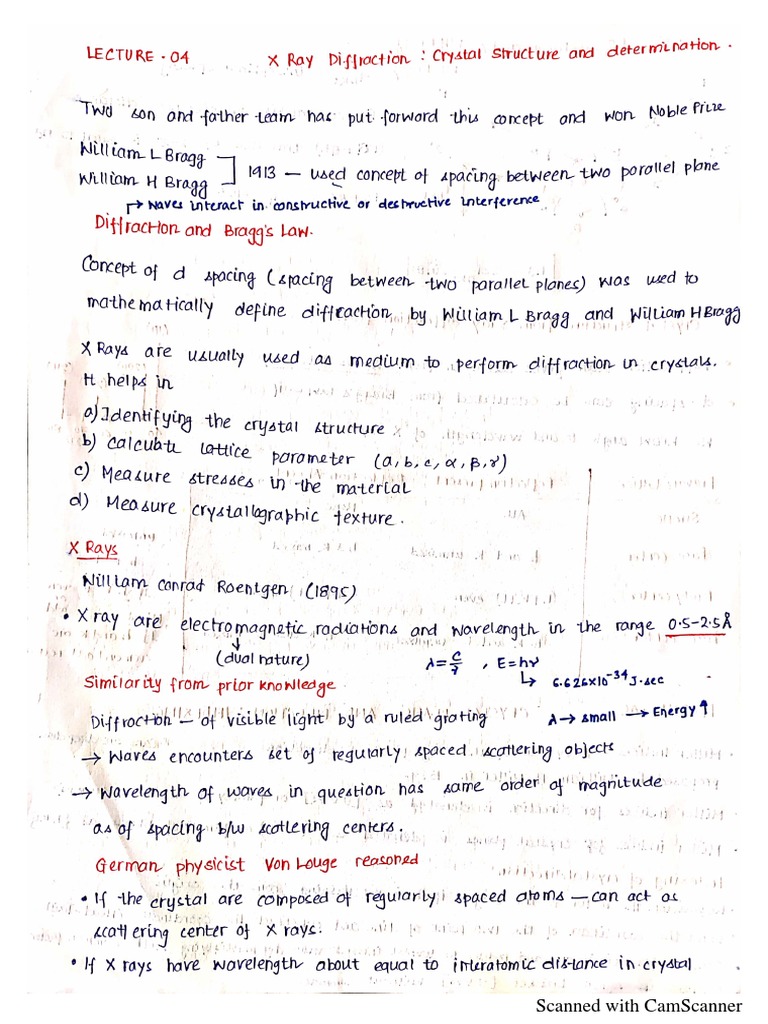 LECTURE - 04 X Ray Diffraction : Crystal Structure and determination .
Two son and father team has put forward this concept and won Noble Prize
William L Bragg
William H Bragg ] 1913 — used concept of spacing between two parallel plane
↱ Waves interact in constructive or destructive interference .
Diffraction and Bragg's Law.
Concept of d spacing ( spacing between two parallel planes) was used to
mathematically define diffraction by William L Bragg and William H Bragg
X Rays are usually used as medium to perform diffraction in crystals.
It helps in
a) Identifying the crystal structure
b) Calculate lattice parameter (a, b, c, α, β, γ)
c) Measure stresses in the material
d) Measure crystallographic texture .
X Rays
William Conrad Roentgen (1895)
• X ray are electromagnetic radiations and wavelength in the range 0.5-2.5Å
(dual nature) λ = C/γ , E = hγ
↳ 6.626x10⁻³⁴ J.sec
Similarity from prior knowledge
Diffraction — of visible light by a ruled grating λ → small → Energy ↑
→ Waves encounters set of regularly spaced scattering objects
→ Wavelength of waves in question has same order of magnitude
as of spacing b/w scattering centers.
German physicist Von Louge reasoned
• If the crystal are composed of regularly spaced atoms — can act as
scattering center of X rays.
• If X rays have wavelength about equal to interatomic distance in crystal
Scanned with CamScanner